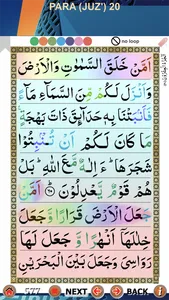 PARA (JUZ') 20
no loop
اَمَّنْ خَلَقَ السَّمٰوٰتِ وَالْاَرْضَ
وَاَنْزَلَ لَكُمْ مِّنَ السَّمَآءِ مَآءً ۚ
فَاَنْۢبَتْنَا بِهٖ حَدَآئِقَ ذَاتَ بَهْجَةٍ ۚ
مَا كَانَ لَكُمْ اَنْ تُنْۢبِتُوْا
شَجَرَهَا ؕ ءَاِلٰهٌ مَّعَ اللّٰهِ ؕ بَلْ
هُمْ قَوْمٌ يَّعْدِلُوْنَ ؕ ﴿۶۰﴾ اَمَّنْ
جَعَلَ الْاَرْضَ قَرَارًا وَّجَعَلَ
خِلٰلَهَاۤ اَنْهٰرًا وَّجَعَلَ لَهَا
رَوَاسِيَ وَجَعَلَ بَيْنَ الْبَحْرَيْنِ
577 NEXT BACK